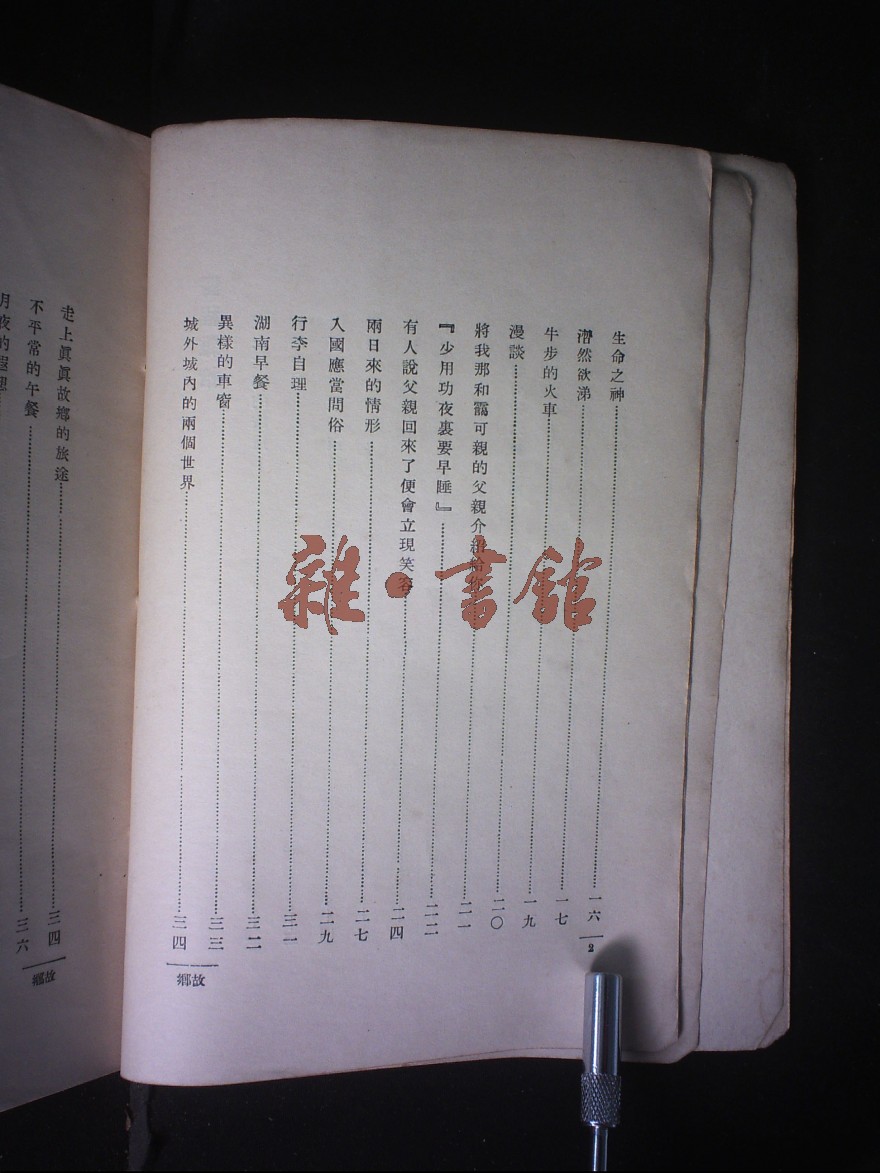 生命之神……一六
潸然欲涕……一七
牛步的火車……一九
漫談……二〇
將我那和靄可親的父親介紹給你……二一
『少用功夜裏要早睡』……二二
有人說父親回來了便會立現笑容……二四
兩日來的情形……二七
入國應當問俗……二九
行李自理……三一
湖南早餐……三二
異樣的車窗……三三
城外城內的兩個世界……三四
2
故鄉
走上眞眞故鄉的旅途……三四
不平常的午餐……三六
故鄉
雜·書館